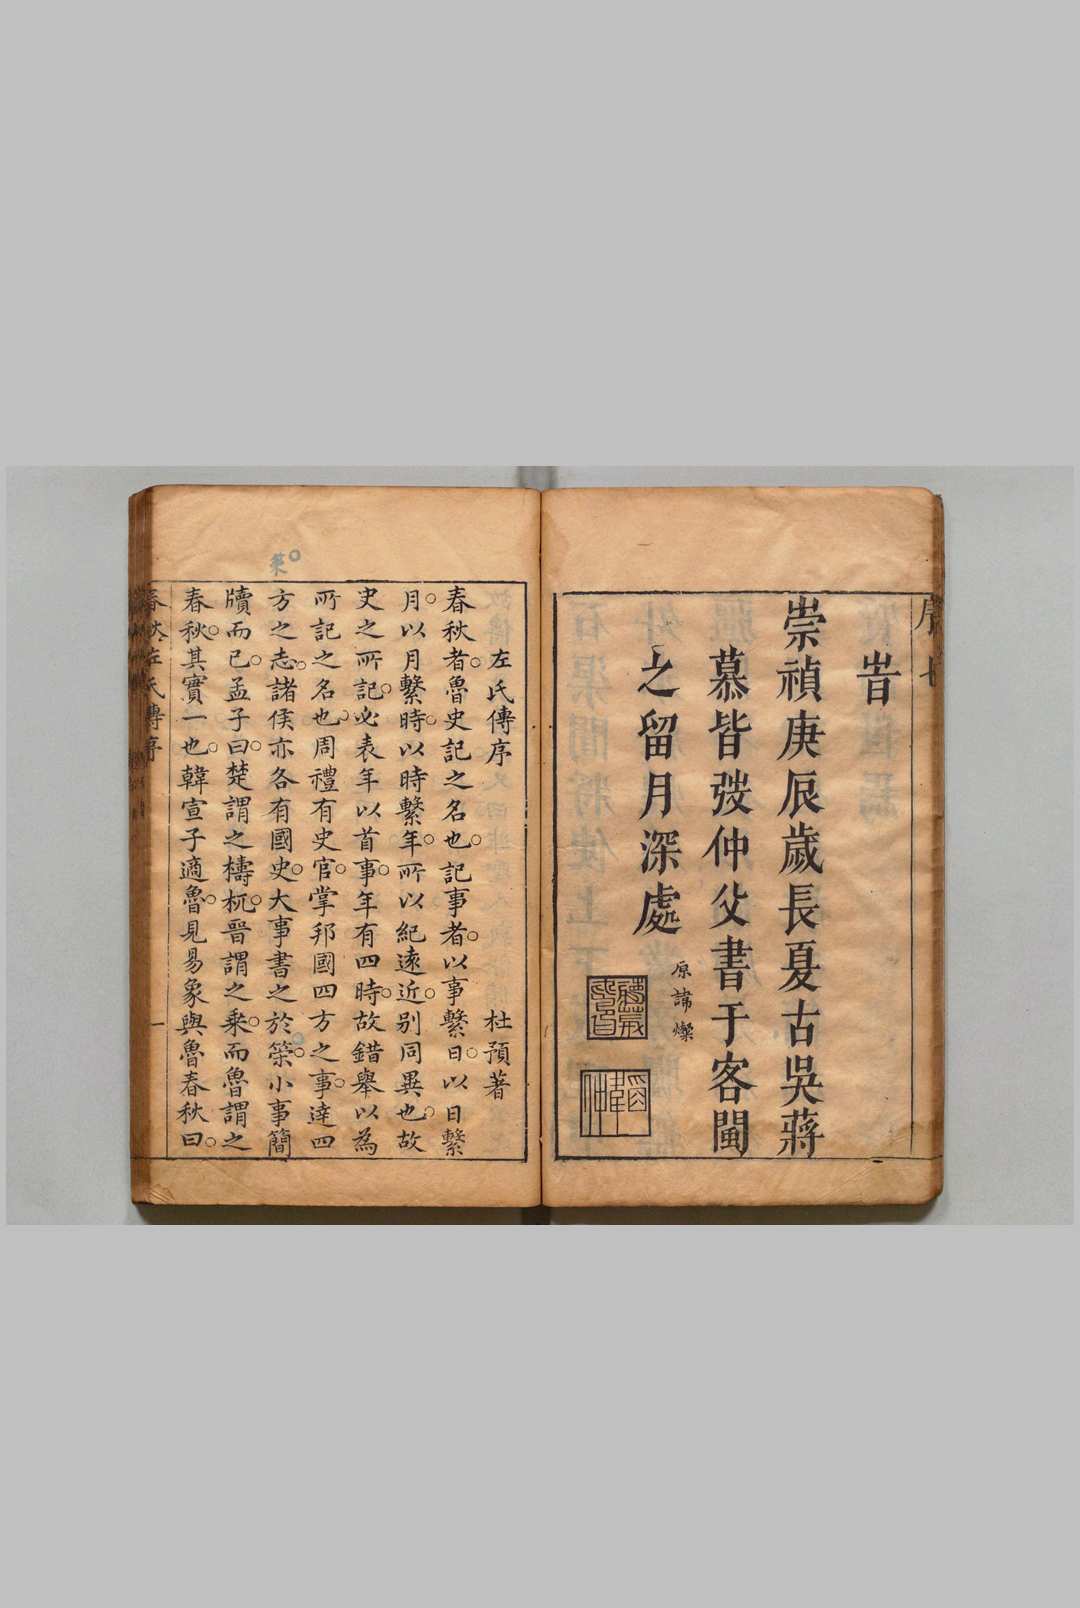 序 七
旹
崇禎庚辰歲長夏古吳蔣
慕皆弢仲父書于客閩
之留月深處
原諱燦
左氏傳序 杜預著
春秋者魯史記之名也記事者以事繫日以日繫
月以月繫時以時繫年所以紀遠近别同異也故
史之所記必表年以首事年有四時故錯舉以為
所記之名也周禮有史官掌邦國四方之事達四
方之志諸侯亦各有國史大事書之於策小事簡
牘而已孟子曰楚謂之檮杌晉謂之乘而魯謂之
春秋其實一也韓宣子適魯見易象與魯春秋曰
春秋左氏傳序 一